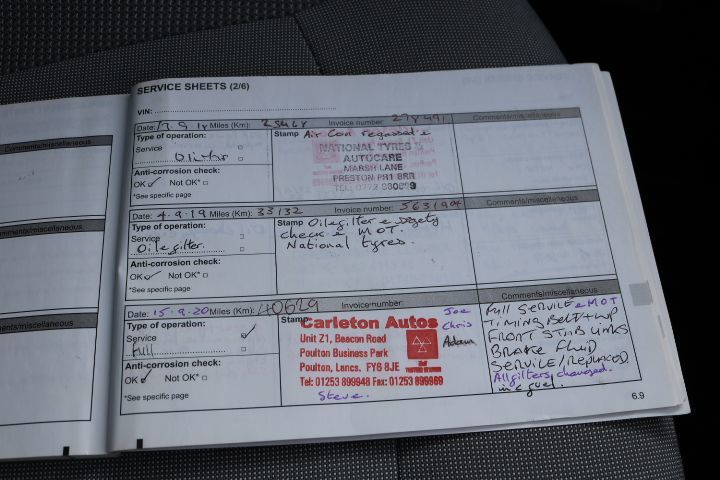 SERVICE SHEETS (2/6)
VIN:
Comments/miscellaneous
Date: 17.9.18 Miles (Km): Invoice number: Comments/miscellaneous
Type of operation:
Service
Stamp Air Con regassed &
NATIONAL TYRES &
AUTOCARE
MARSH LANE
PRESTON PR1 8RR
Anti-corrosion check:
OK Not OK*
*See specific page
Comments/miscellaneous
Date: 4.9.19 Miles (Km): 33132 Invoice number: Comments/miscellaneous
Type of operation:
Service
Oil & filter.
Stamp Oil & filter & safety
check & MOT.
National tyres.
Anti-corrosion check:
OK Not OK*
*See specific page
Comments/miscellaneous
Date: 15.9.20 Miles (Km): 40629 Invoice number: Comments/miscellaneous
Type of operation:
Service
Full
Stamp
Carleton Autos
Unit Z1, Beacon Road
Poulton Business Park
Poulton, Lancs. FY6 8JE
Tel: 01253 899948 Fax: 01253 899969
Steve.
Joe
Chris
Adam
Full SERVICE & MOT
TIMING BELT & WP
FRONT STAB LINKS
BRAKE FLUID
SERVICE/REPLACED
All filters changed.
Anti-corrosion check:
OK Not OK*
*See specific page
6.9